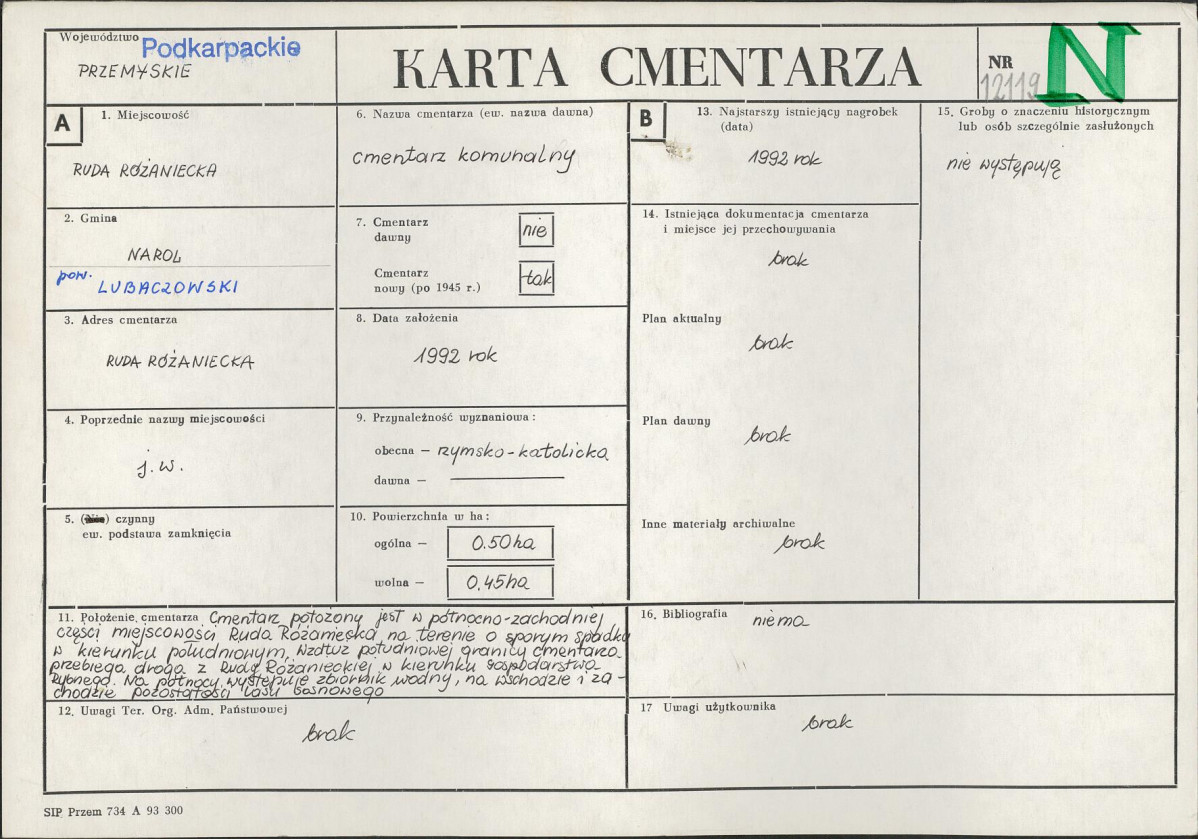 Województwo Podkarpackie
PRZEMYSKIE
KARTA CMENTARZA
NR
12119
N
A
1. Miejscowość
RUDA RÓŻANIECKA
2. Gmina
NAROL
pow. LUBACZOWSKI
3. Adres cmentarza
RUDA RÓŻANIECKA
4. Poprzednie nazwy miejscowości
j.w.
5. (Nie) czynny
ew. podstawa zamknięcia
6. Nazwa cmentarza (ew. nazwa dawna)
cmentarz komunalny
7. Cmentarz
dawny
nie
Cmentarz
nowy (po 1945 r.)
tak
8. Data założenia
1992 rok
9. Przynależność wyznaniowa:
obecna — rzymsko-katolicka
dawna —
10. Powierzchnia w ha:
ogólna — 0.50 ha
wolna — 0,45 ha
11. Położenie cmentarza Cmentarz położony jest w północno-zachodniej
części miejscowości Ruda Różaniecka na terenie o sporym spadku
w kierunku południowym. Wzdłuż południowej granicy cmentarza
przebiega droga z Rudy Różanieckiej w kierunku Gospodarstwa
Rybnego. Na północy występuje zbiornik wodny, na wschodzie i za-
chodzie pozostałości lasu sosnowego
12. Uwagi Ter. Org. Adm. Państwowej
brak
B
13. Najstarszy istniejący nagrobek
(data)
1992 rok
14. Istniejąca dokumentacja cmentarza
i miejsce jej przechowywania
brak
Plan aktualny
brak
Plan dawny
brak
Inne materiały archiwalne
brak
15. Groby o znaczeniu historycznym
lub osób szczególnie zasłużonych
nie występują
16. Bibliografia
niema
17 Uwagi użytkownika
brak
SIP. Przem 734 A 93 300